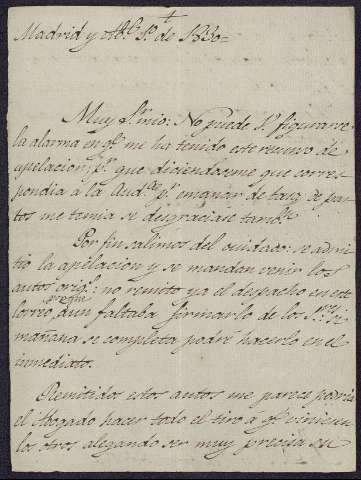 Madrid y Ab.l 1.o de 1830=
Muy S.r mio: No puede V. figurarse
la alarma en q.e me ha tenido este recurso de
apelacion, p.r que diciendoseme que corres-
pondia á la Aud.a p.r emanar de de par-
tos me temia se desgraciase tamb.n
Por fin salimos del cuidado: se admi-
tió la apelacion y se mandan venir los
autos orig.s: no remito ya el despacho en este
correo, aun faltaba firmarlo de los S.res si
mañana se completa podré hacerlo en el
inmediato.
Remitidos estos autos me parece podria
el Abogado hacer todo el tiro á q.e vinieran
los otros alegando ser muy precisa su